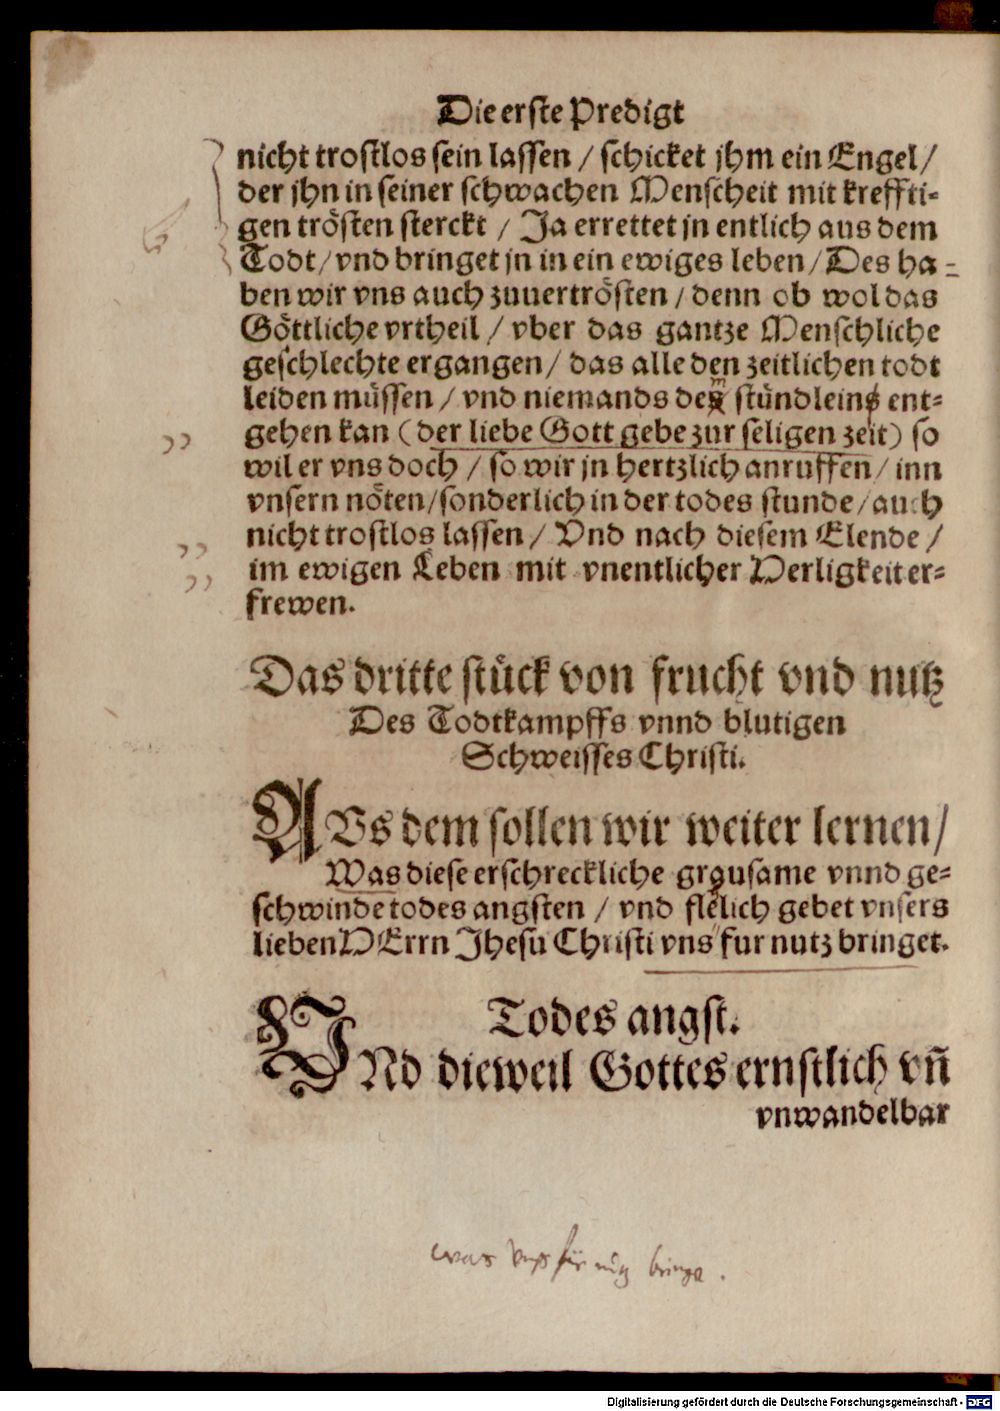 Die erste Predigt
nicht trostlos sein lassen / schicket jhm ein Engel /
der jhn in seiner schwachen Menscheit mit kreffti-
gen trösten sterckt / Ja errettet jn entlich aus dem
Todt / vnd bringet jn in ein ewiges leben / Des ha-
ben wir vns auch zuuertrösten / denn ob wol das
Göttliche vrtheil / vber das gantze Menschliche
geschlechte ergangen / das alle den zeitlichen todt
leiden müssen / vnd niemands dem stündlein ent-
gehen kan (der liebe Gott gebe zur seligen zeit) so
wil er vns doch / so wir jn hertzlich anruffen / inn
vnsern nöten / sonderlich in der todes stunde / auch
nicht trostlos lassen / Vnd nach diesem Elende /
im ewigen Leben mit vnentlicher Herligkeit er-
frewen.
Das dritte stück von frucht vnd nutz
Des Todtkampffs vnnd blutigen
Schweisses Christi.
AVs dem sollen wir weiter lernen /
Was diese erschreckliche grausame vnnd ge-
schwinde todes angsten / vnd flelich gebet vnsers
lieben HErrn Jhesu Christi vns fur nutz bringet.
Todes angst.
VNd dieweil Gottes ernstlich vñ
vnwandelbar
was vnß für nutz bringe.
Digitalisierung gefördert durch die Deutsche Forschungsgemeinschaft - DFG